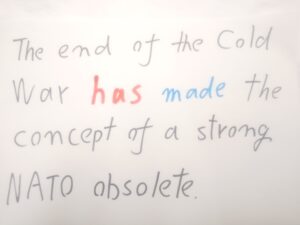 The end of the Cold
War has made the
concept of a strong
NATO obsolete.